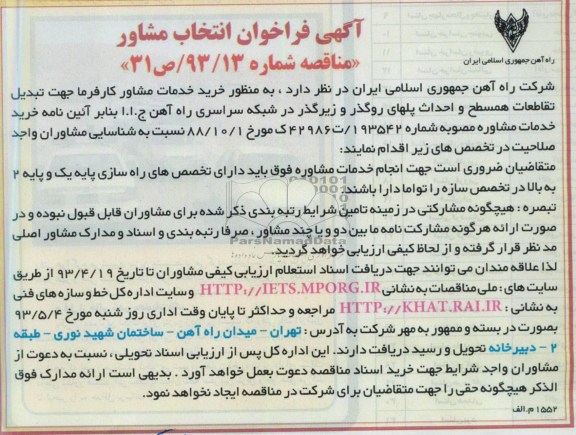 آگهی فراخوان انتخاب مشاور
«مناقصه شماره ۹۳/۱۳/ص۳۱»
راه آهن جمهوری اسلامی ایران
شرکت راه آهن جمهوری اسلامی ایران در نظر دارد ، به منظور خرید خدمات مشاور کارفرما جهت تبدیل
تقاطعات همسطح و احداث پلهای روگذر و زیرگذر در شبکه سراسری راه آهن ج.ا.ا بنابر آئین نامه خرید
خدمات مشاوره مصوبه شماره ۱۹۳۵۴۲/ت۴۲۹۸۶ک مورخ ۸۸/۱۰/۱ نسبت به شناسایی مشاوران واجد
صلاحیت در تخصص های زیر اقدام نمایند:
متقاضیان ضروری است جهت انجام خدمات مشاوره فوق باید دارای تخصص های راه سازی پایه یک و پایه ۲
به بالا در تخصص سازه را تواما دارا باشند
تبصره : هیچگونه مشارکتی در زمینه تامین شرایط رتبه بندی ذکر شده برای مشاوران قابل قبول نبوده و در
صورت ارائه هرگونه مشارکت نامه ما بین دو و یا چند مشاور ، صرفا رتبه بندی و اسناد و مدارک مشاور اصلی
مد نظر قرار گرفته و از لحاظ کیفی ارزیابی خواهد گردید.
لذا علاقه مندان می توانند جهت دریافت اسناد استعلام ارزیابی کیفی مشاوران تا تاریخ ۹۳/۴/۱۹ از طریق
سایت های : ملی مناقصات به نشانی HTTP://IETS.MPORG.IR وسایت اداره کل خط و سازه های فنی
به نشانی : HTTP://KHAT.RAI.IR مراجعه و حداکثر تا پایان وقت اداری روز شنبه مورخ ۹۳/۵/۴
بصورت در بسته و ممهور به مهر شرکت به آدرس : تهران - میدان راه آهن - ساختمان شهید نوری - طبقه
۲ - دبیرخانه تحویل و رسید دریافت دارند. این اداره کل پس از ارزیابی اسناد تحویلی ، نسبت به دعوت از
مشاوران واجد شرایط جهت خرید اسناد مناقصه دعوت بعمل خواهد آورد . بدیهی است ارائه مدارک فوق
الذکر هیچگونه حقی را جهت متقاضیان برای شرکت در مناقصه ایجاد نخواهد نمود.
۱۵۵۲ م.الف
ParsNamadData